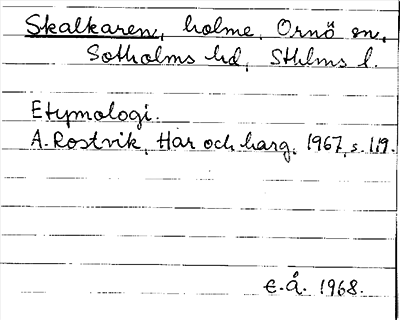 Skalkaren, holme, Ornö sn,
Sotholms hd, Sthlms l.
Etymologi.
A. Rostvik, Har och harg, 1967, s. 119.
E.Å. 1968.